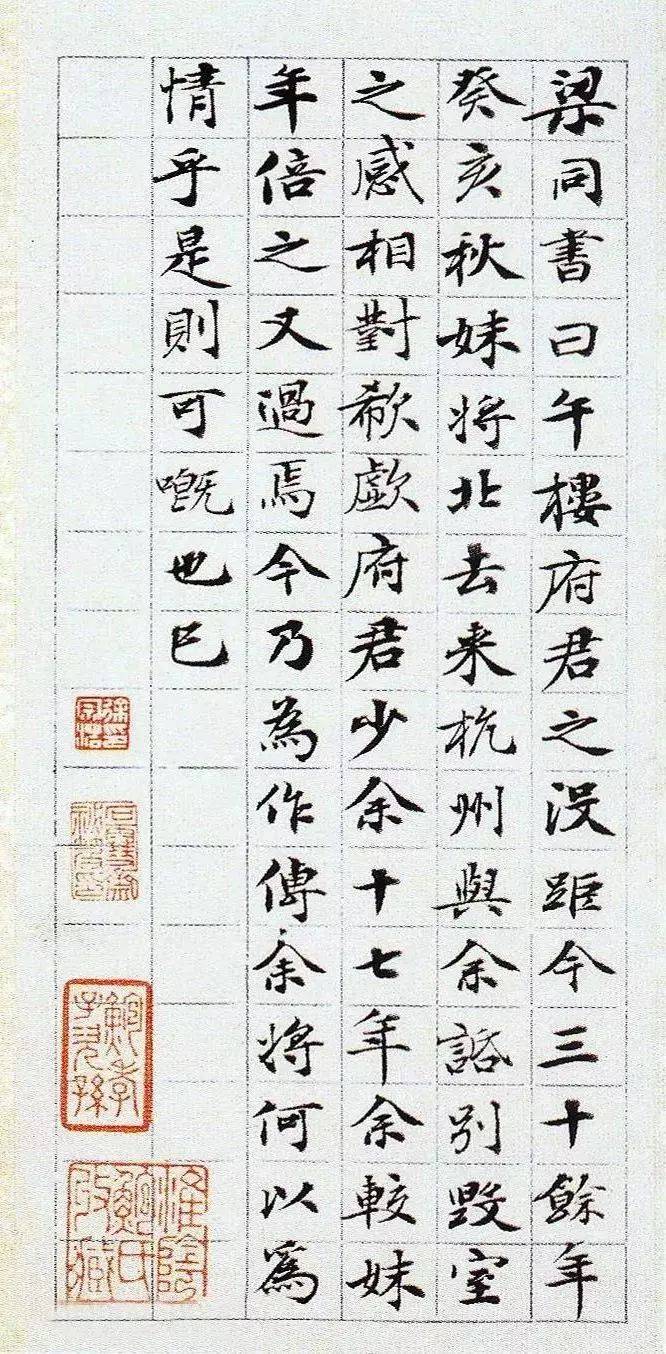 梁同書曰午樓府君之没距今三十餘年
癸亥秋妹将北去来杭州與余話别毀室
之感相對欷歔府君少余十七年余較妹
年倍之又過焉今乃為作傳余將何以爲
情乎是則可嘅也已